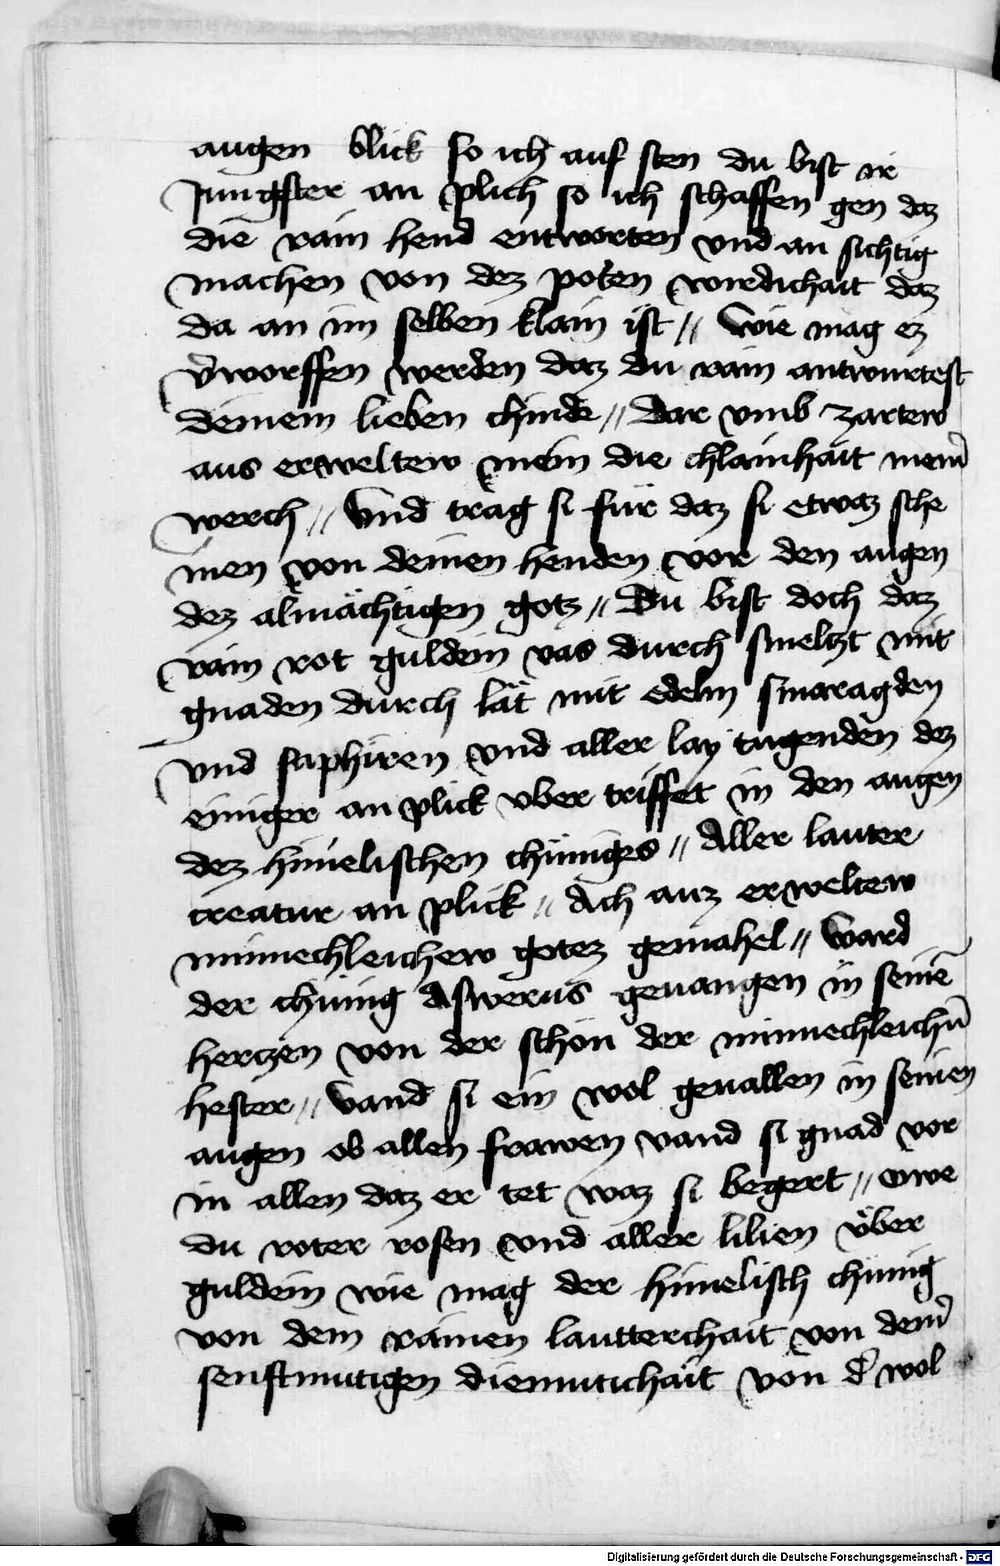 augen blick so ich auf sten du bist ir
Jungster an plich so ich schaffen gen daz
die rain hend entworten vnd an sichtig
machen von dez poten wirdichait daz
da an im selben klain ist // wie mag ez
v̄worffen werden daz du rain antwurtest
deinem lieben chinde // dar vmb zartew
aus erweltew nem die chlainhait mein̄
werch // Vnd trag si für daz si etwaz sche
inen von deinen henden vor den augen
dez almächtigen gotz // Du bist doch daz
rain rot guldein vas durch smeltzt mit
gnaden durch lät mit edeln smaragden
vnd saphiren vnd aller lay tugenden dez
einiger an plick vber triffet in den augen
dez himelischen chüniges // Aller lauter
creatur an plick // Ach auz erweltew
minnechleichew gotez gemahel // Ward
der chünig Aswerus geuangen in seinē
hertzen von der schön der minnechleichn̄
hester // vand si ein wol geuallen in seinen
augen ob allen frawen vand si gnad vor
in allen daz er tet waz si begert // owe
du roter rosen vnd aller lilien über
guldein wie mag der himelisch chünig
von dein rainen lautterchait von dein̄
senftmutigen diemutichait von d̄ wol
Digitalisierung gefördert durch die Deutsche Forschungsgemeinschaft - DFG